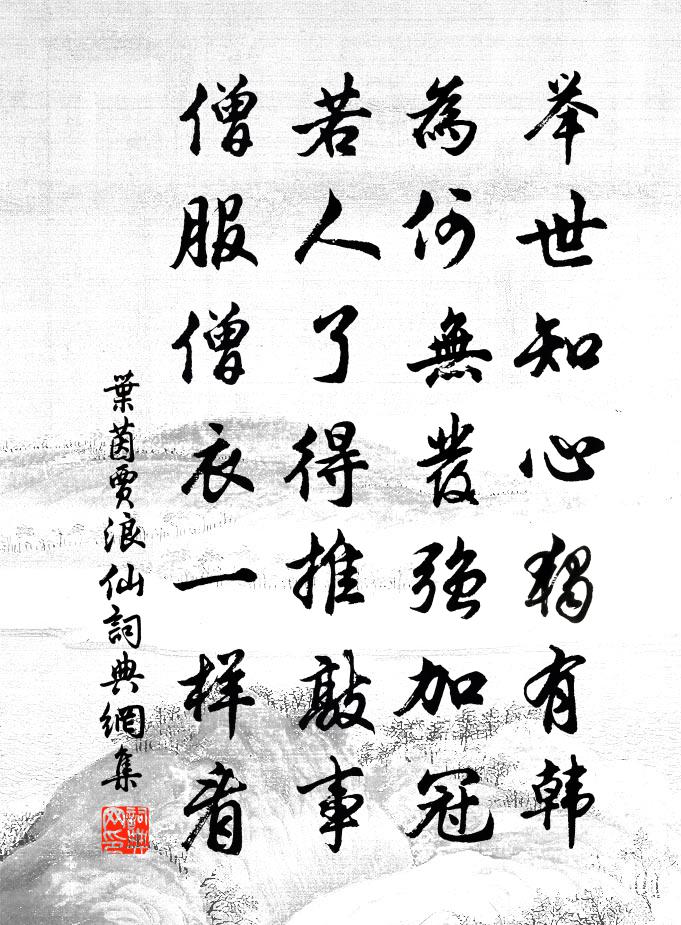 举世知心独有韩
為何無發强加冠
若人了得推敲事
僧服僧衣一样看
葉茵賈浪仙詞典網集